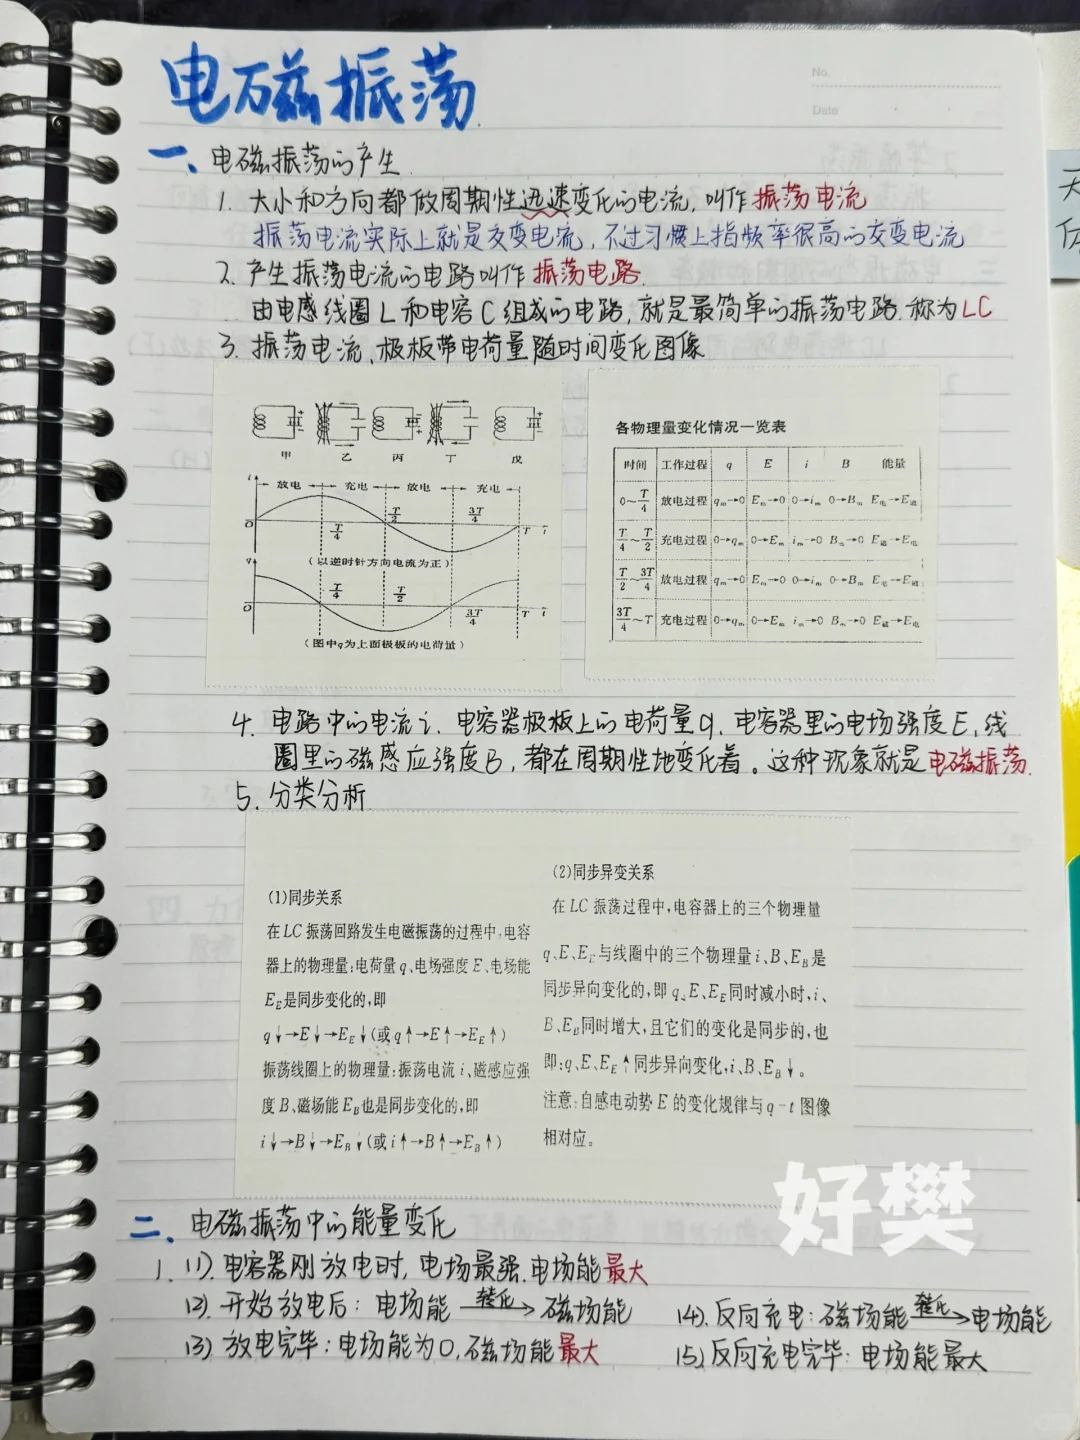 电磁振荡
No.
Date
一、电磁振荡的产生
1. 大小和方向都做周期性迅速变化的电流,叫作振荡电流
振荡电流实际上就是交变电流,不过习惯上指频率很高的交变电流
2. 产生振荡电流的电路叫作振荡电路.
由电感线圈L和电容C组成的电路,就是最简单的振荡电路.称为LC
3. 振荡电流、极板带电荷量随时间变化图像
甲 乙 丙 丁 戊
i 放电 充电 放电 充电
O T/4 T/2 3T/4 T t
(以逆时针方向电流为正)
q
O T/4 T/2 3T/4 T t
(图中q为上面极板的电荷量)
各物理量变化情况一览表
时间 工作过程 q E i B 能量
0~T/4 放电过程 qm→0 Em→0 0→im 0→Bm E电→E磁
T/4~T/2 充电过程 0→qm 0→Em im→0 Bm→0 E磁→E电
T/2~3T/4 放电过程 qm→0 Em→0 0→im 0→Bm E电→E磁
3T/4~T 充电过程 0→qm 0→Em im→0 Bm→0 E磁→E电
4. 电路中的电流i、电容器极板上的电荷量q、电容器里的电场强度E、线
圈里的磁感应强度B,都在周期性地变化着。这种现象就是电磁振荡.
5. 分类分析
(1)同步关系
在LC振荡回路发生电磁振荡的过程中,电容
器上的物理量:电荷量q、电场强度E、电场能
EE是同步变化的,即
q↓→E↓→EE↓(或q↑→E↑→EE↑)
振荡线圈上的物理量:振荡电流i、磁感应强
度B、磁场能EB也是同步变化的,即
i↓→B↓→EB↓(或i↑→B↑→EB↑)
(2)同步异变关系
在LC振荡过程中,电容器上的三个物理量
q、E、EE与线圈中的三个物理量i、B、EB是
同步异向变化的,即q、E、EE同时减小时,i、
B、EB同时增大,且它们的变化是同步的,也
即:q、E、EE↑同步异向变化,i、B、EB↓。
注意:自感电动势E的变化规律与q-t图像
相对应。
好樊
二、电磁振荡中的能量变化
1. (1). 电容器刚放电时,电场最强.电场能最大
(2). 开始放电后:电场能 转化→ 磁场能
(3) 放电完毕:电场能为0,磁场能最大
(4). 反向充电:磁场能 转化→ 电场能
(5). 反向充电完毕:电场能最大
天
体